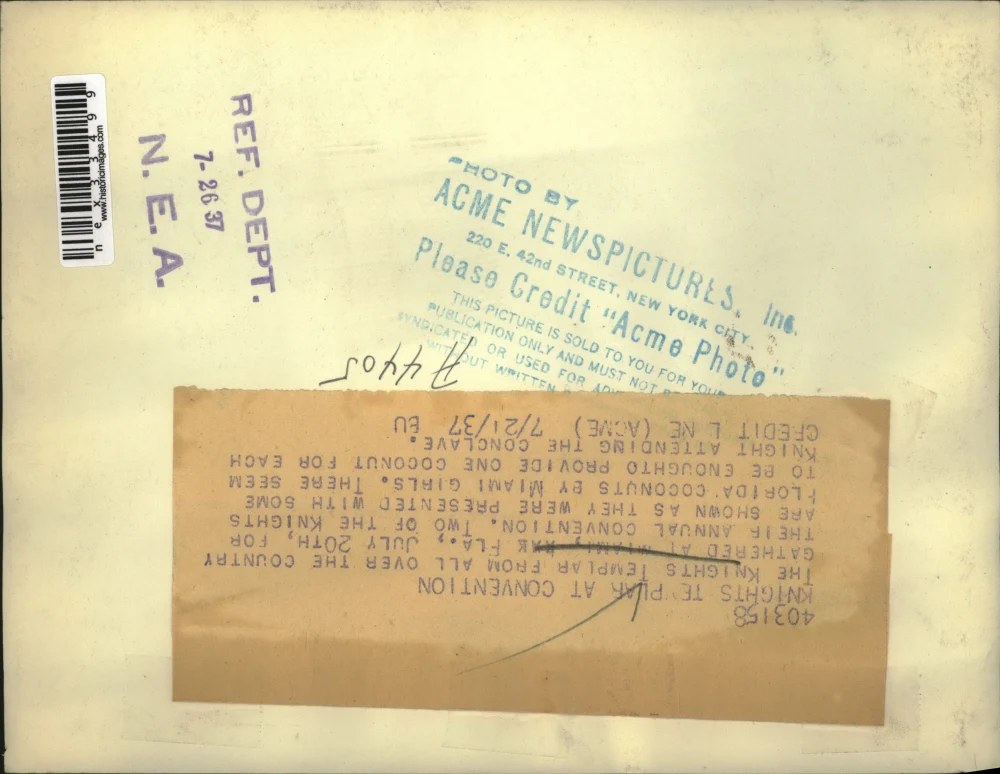 nex33499
www.historicimages.com
REF. DEPT.
7-26 37
N. E. A.
PHOTO BY
ACME NEWSPICTURES, Inc.
220 E. 42nd STREET, NEW YORK CITY
Please Credit "Acme Photo"
THIS PICTURE IS SOLD TO YOU FOR YOUR
PUBLICATION ONLY AND MUST NOT
SYNDICATED OR USED FOR
WITHOUT WRITTEN
A4405
403158
KNIGHTS TE PLAR AT CONVENTION
THE KNIGHTS TEMPLAR FROM ALL OVER THE COUNTRY
GATHERED AT MIAMI, FLA., JULY 20TH, FOR
THEIR ANNUAL CONVENTION. TWO OF THE KNIGHTS
ARE SHOWN AS THEY WERE PRESENTED WITH SOME
FLORIDA COCONUTS BY MIAMI GIRLS. THERE SEEM
TO BE ENOUGHTO PROVIDE ONE COCONUT FOR EACH
KNIGHT ATTENDING THE CONCLAVE.
CREDIT L NE (ACME) 7/21/37 BU